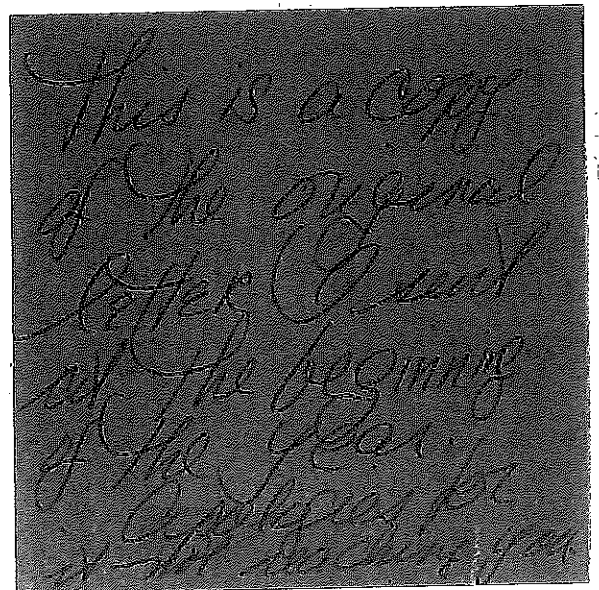 This is a copy
of the original
letter I sent
at the beginning
of the year.
Apologies for
not sending you